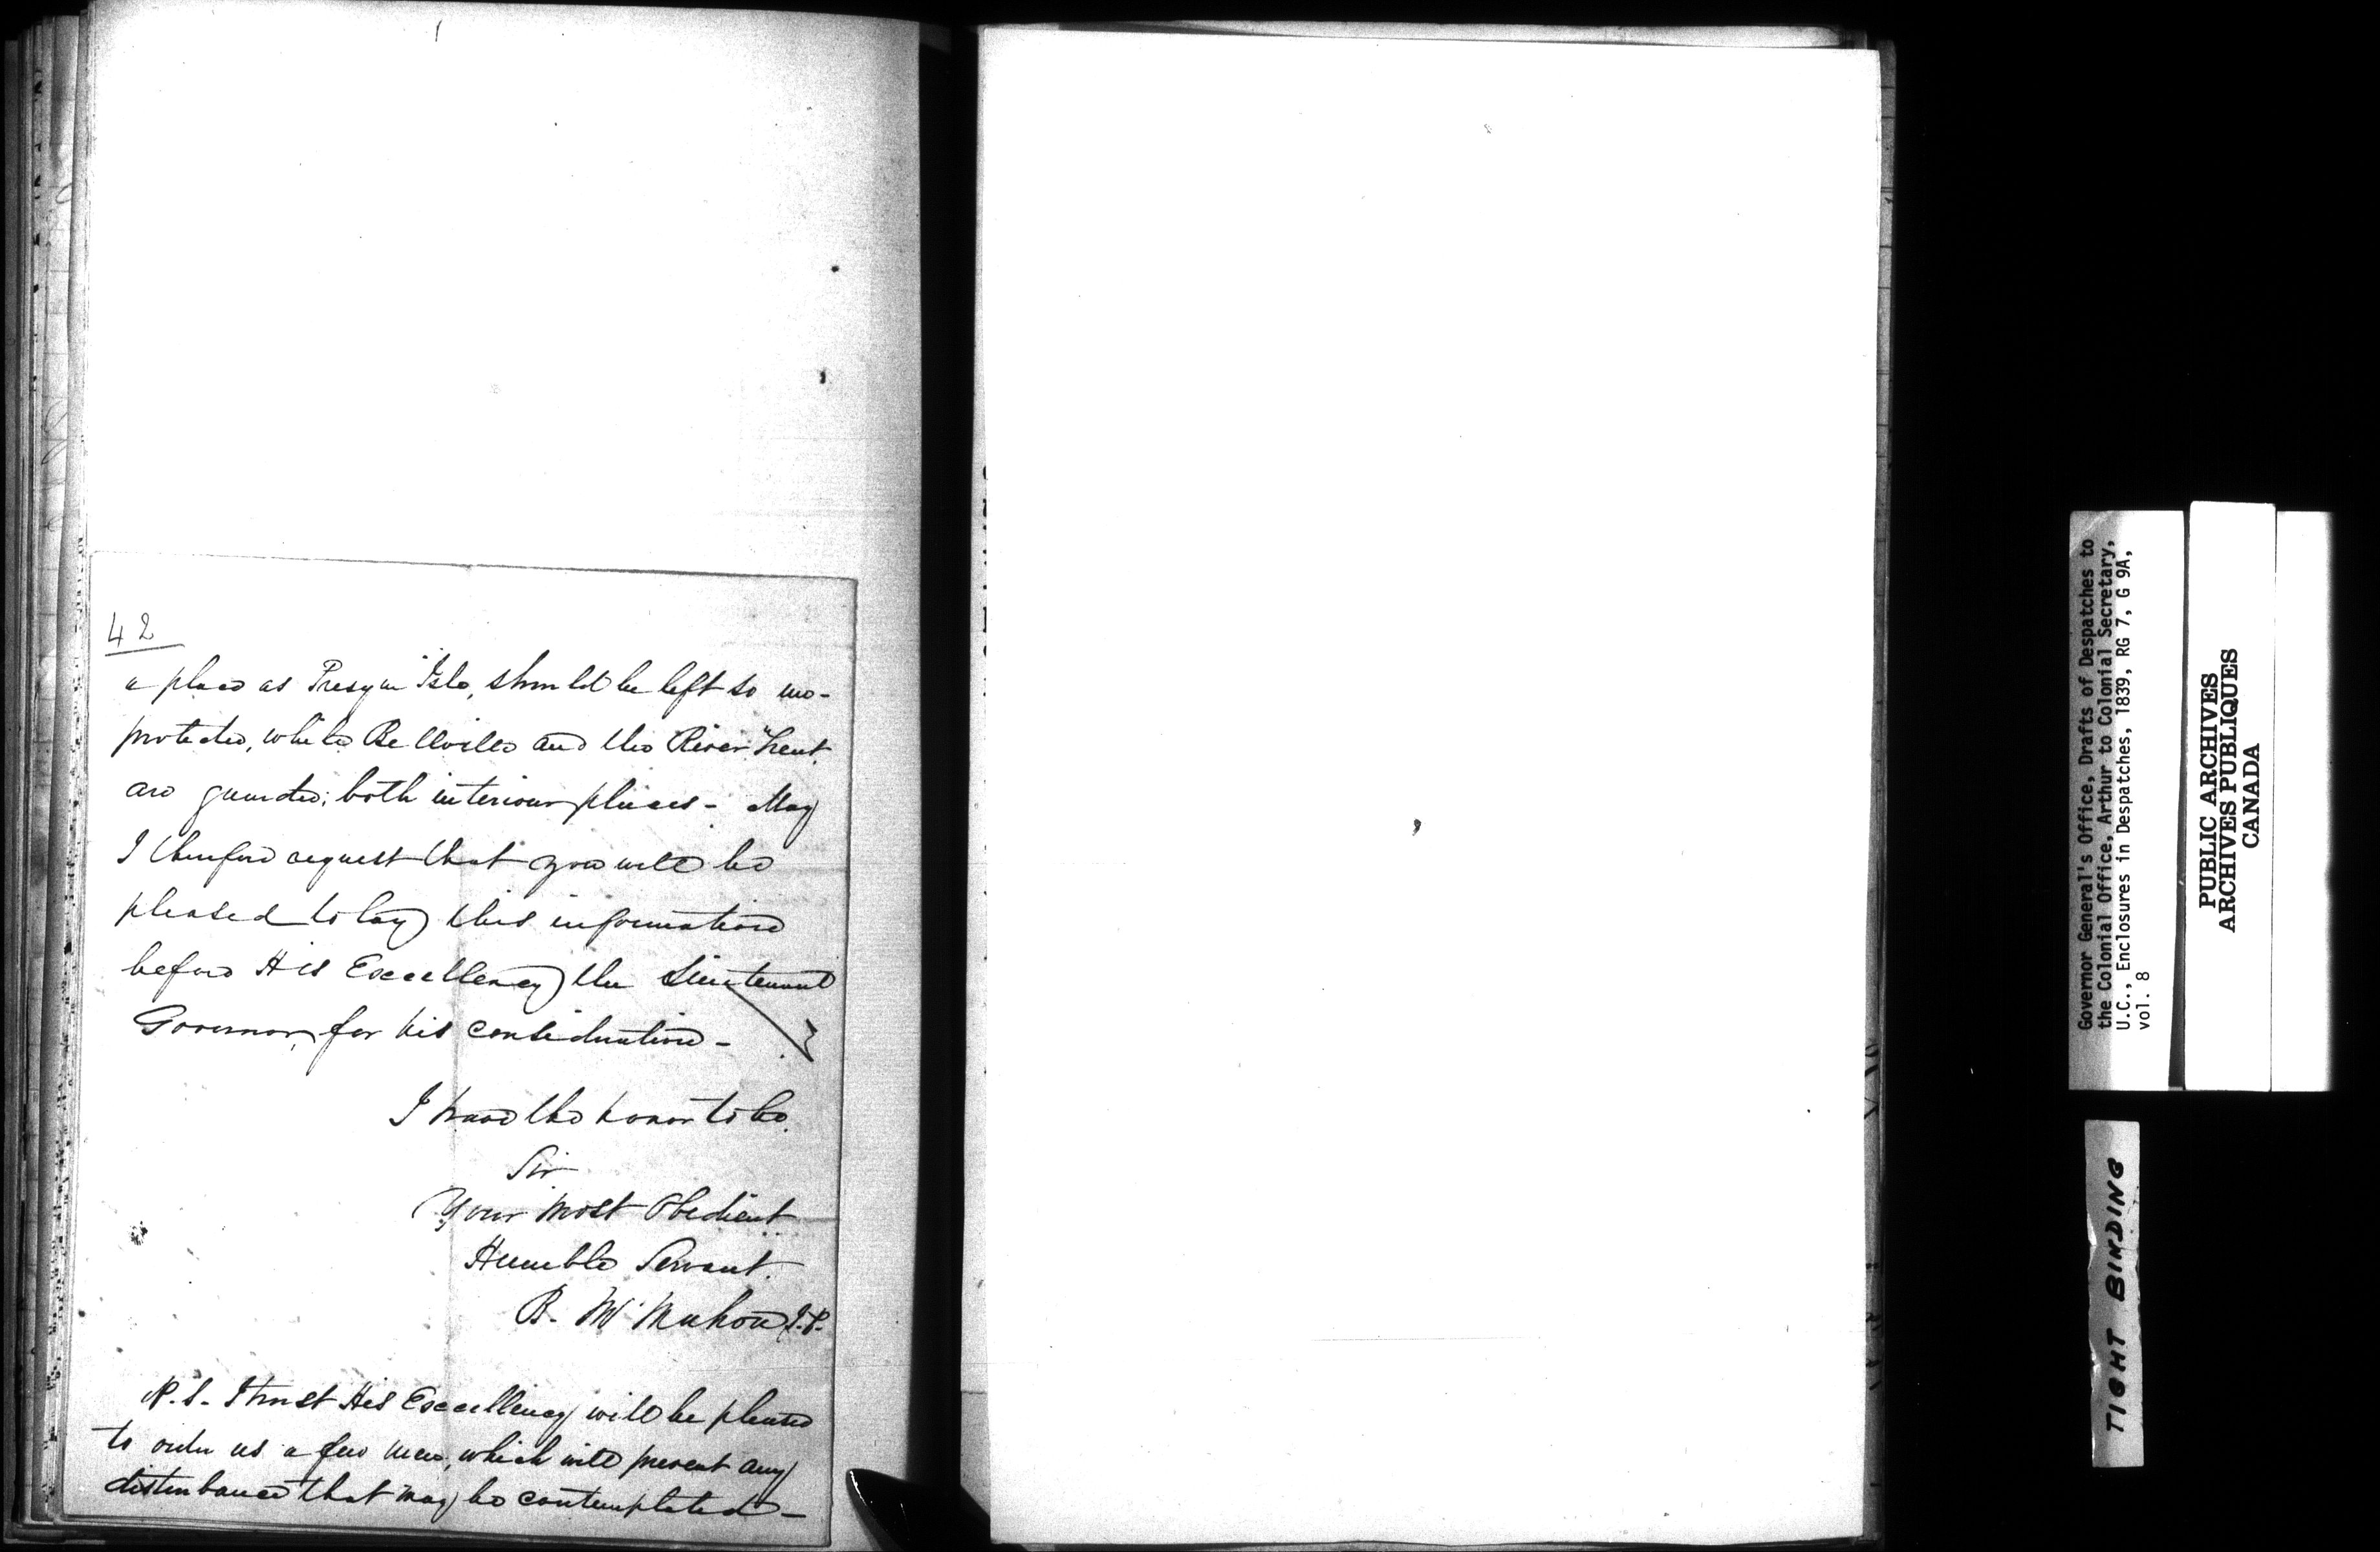 42
a place as Presqu'Isle, should be left so un-
protected, while Bellville and the River Trent.
are guarded; both interiour places - May
I therefore request that you will be
pleased to lay this information
before His Excellency the Lieutenant
Governor, for his consideration -
I have the honor to be.
Sir
Your most Obedient
Humble Servant.
B. McMahon J.P.
P.S. - I trust His Excellency will be pleased
to order us a few men, which will prevent any
disturbance that may be contemplated -
Governor General's Office, Drafts of Despatches to
the Colonial Office, Arthur to Colonial Secretary,
U.C., Enclosures in Despatches, 1839, RG 7, G 9A,
vol. 8
PUBLIC ARCHIVES
ARCHIVES PUBLIQUES
CANADA
TIGHT BINDING